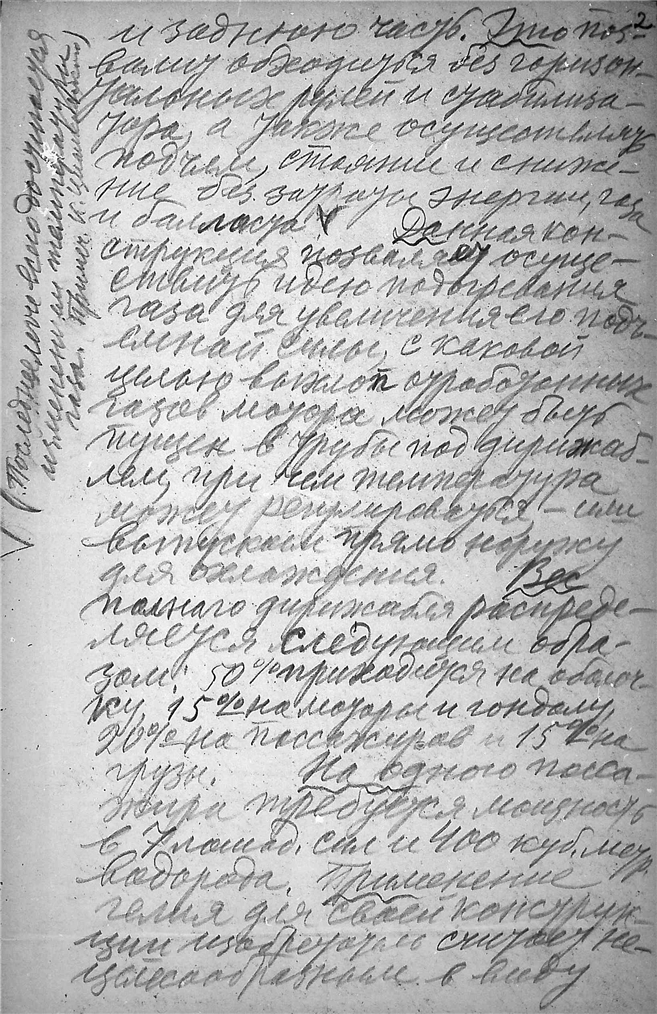 2
и заднюю часть. Это поз-
валит обходиться без горизон-
тальных рулей и стабилиза-
тора, а также осуществлять
подъем, стояние и сниже-
ние без затраты энергии, газа
и балласта V Данная кон-
струкция позваляет осуще-
ствить идею подогревания
газа для увеличения его подъ-
емной силы, с каковой
целью выхлоп отработанных
газов мотора может быть
пущен в трубы под дирижаб-
лем, при чем температура
может регулироваться – или
выпуском прямо наружу
для охлаждения. Вес
полного дирижабля распреде-
ляется следующим обра-
зом: 50% приходится на оболоч-
ку, 15% на моторы и гондолу,
20% на пассажиров и 15% на
грузы. На одного пасса-
жира требуется мощность
в 7 лошад. сил и 400 куб. метр.
водорода. Применение
гелия для своей конструк-
ции изобретатель считает не-
целесообразным в виду
V (Последнее легко достигается
изменением температуры
газа. Примеч. К. Циолковского)